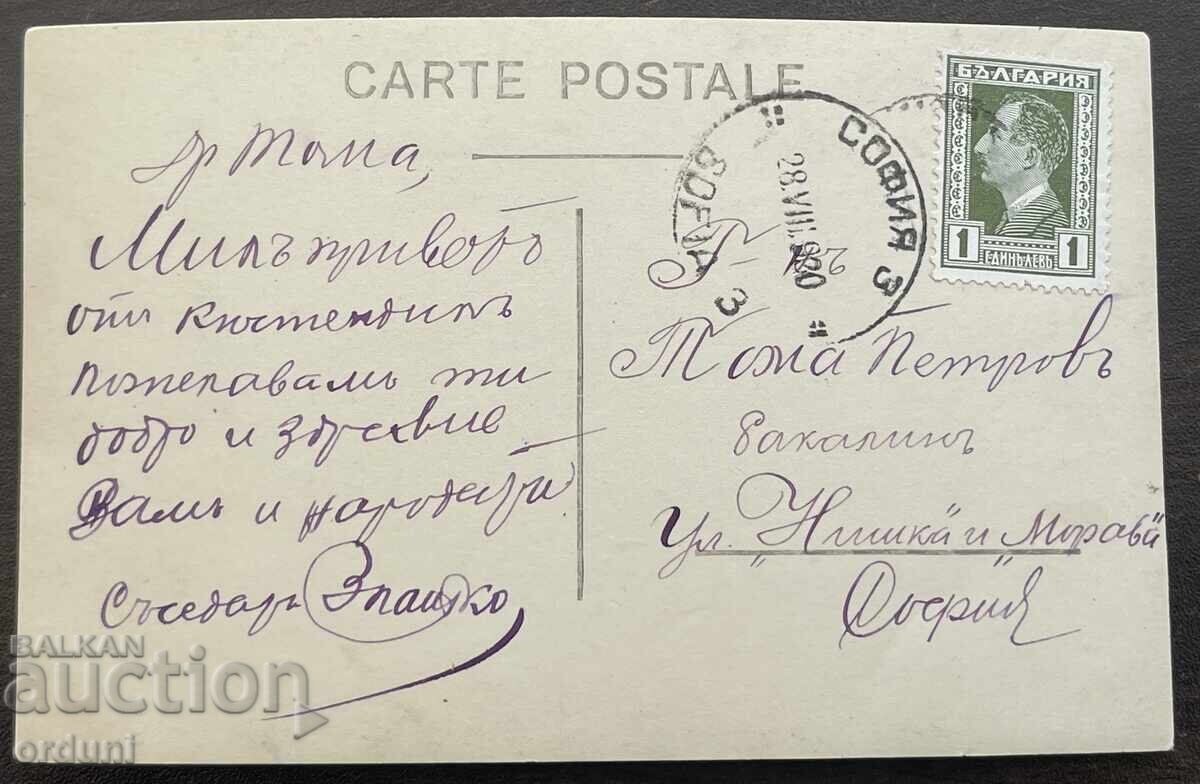 CARTE POSTALE
БЪЛГАРИЯ
1 ЕДИНЪ ЛЕВЪ 1
СОФИЯ 3
28.VIII.
SOFIA 3
др Тома,
Милъ приветъ
отъ Кюстендилъ
пожелавамъ ти
добро и здравие
Вамъ и
Съседаръ Златко
Г-нъ
Тома Петровъ
бакалинъ
Ул. "Нишка" и Морава"
София
BALKAN
auction
orduni